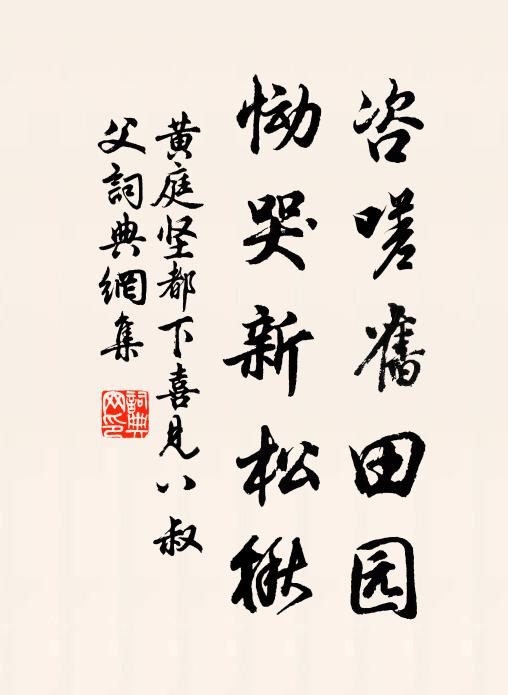 咨嗟舊田园
恸哭新松楸
黄庭坚都下喜见八叔
父詞典網集
詞典网印